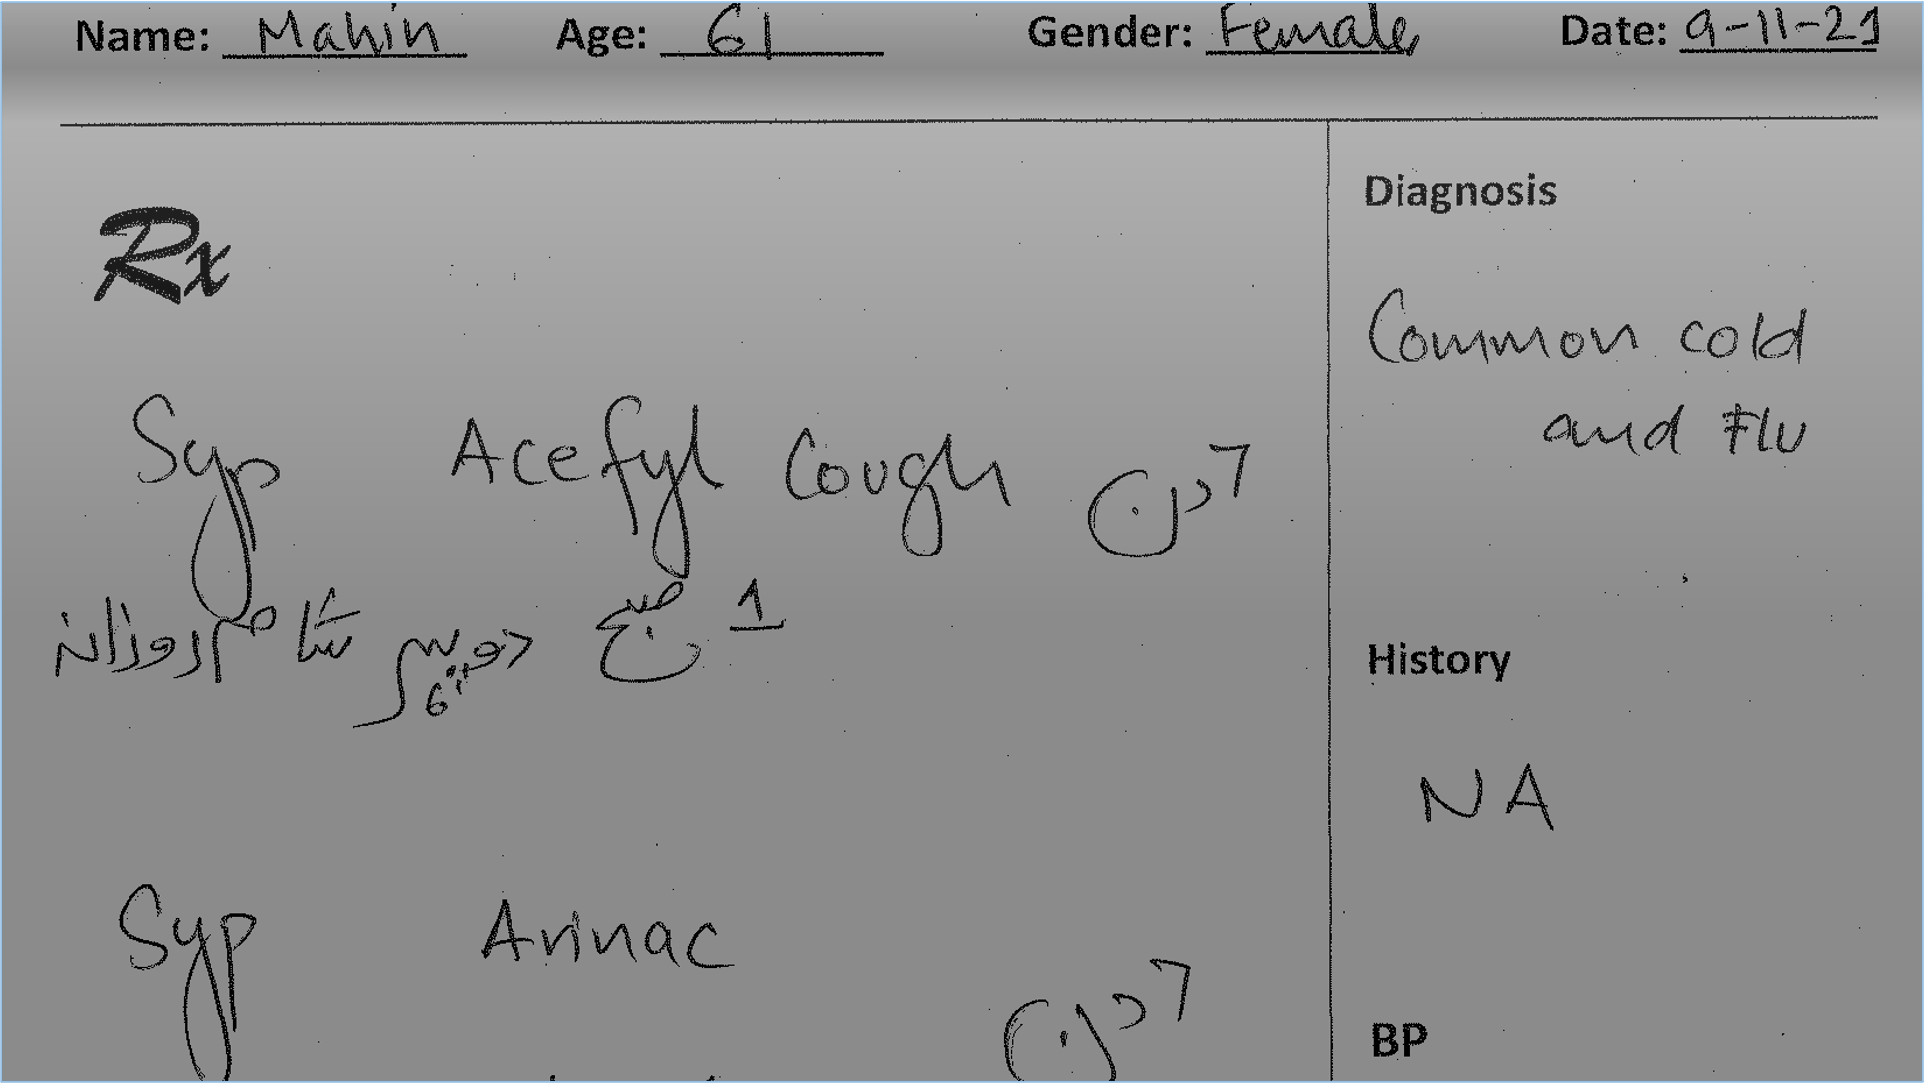 Name: Mahin Age: 61 Gender: Female Date: 9-11-21
Rx
Syp Acefyl Cough 7 دن
1 صبح دوپہر شام روزانہ
Syp Arinac
7 دن
Diagnosis
Common cold
and Flu
History
NA
BP